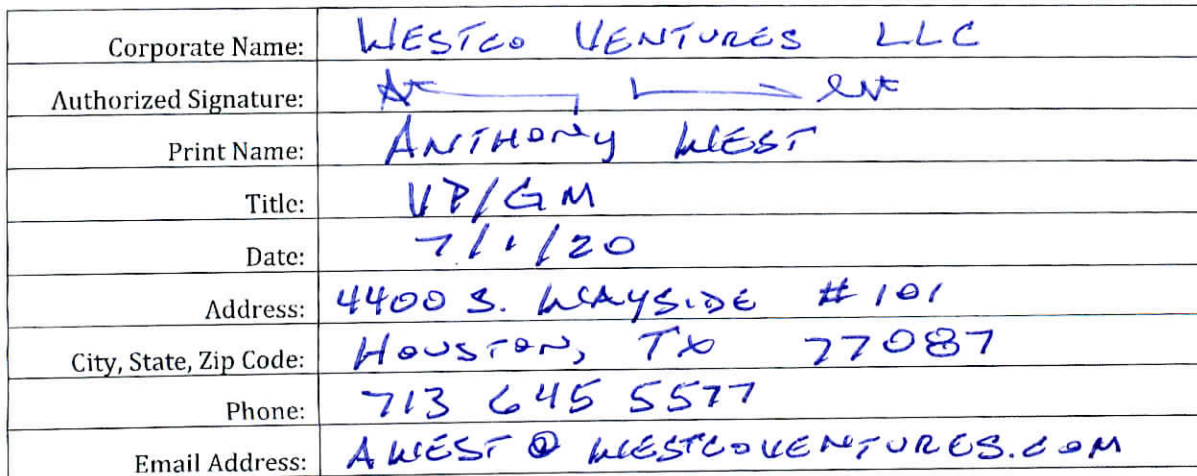 Corporate Name: WESTCO VENTURES LLC
Authorized Signature:
Print Name: ANTHONY WEST
Title: VP/GM
Date: 7/1/20
Address: 4400 S. WAYSIDE #101
City, State, Zip Code: HOUSTON, TX 77087
Phone: 713 645 5577
Email Address: AWEST@WESTCOVENTURES.COM